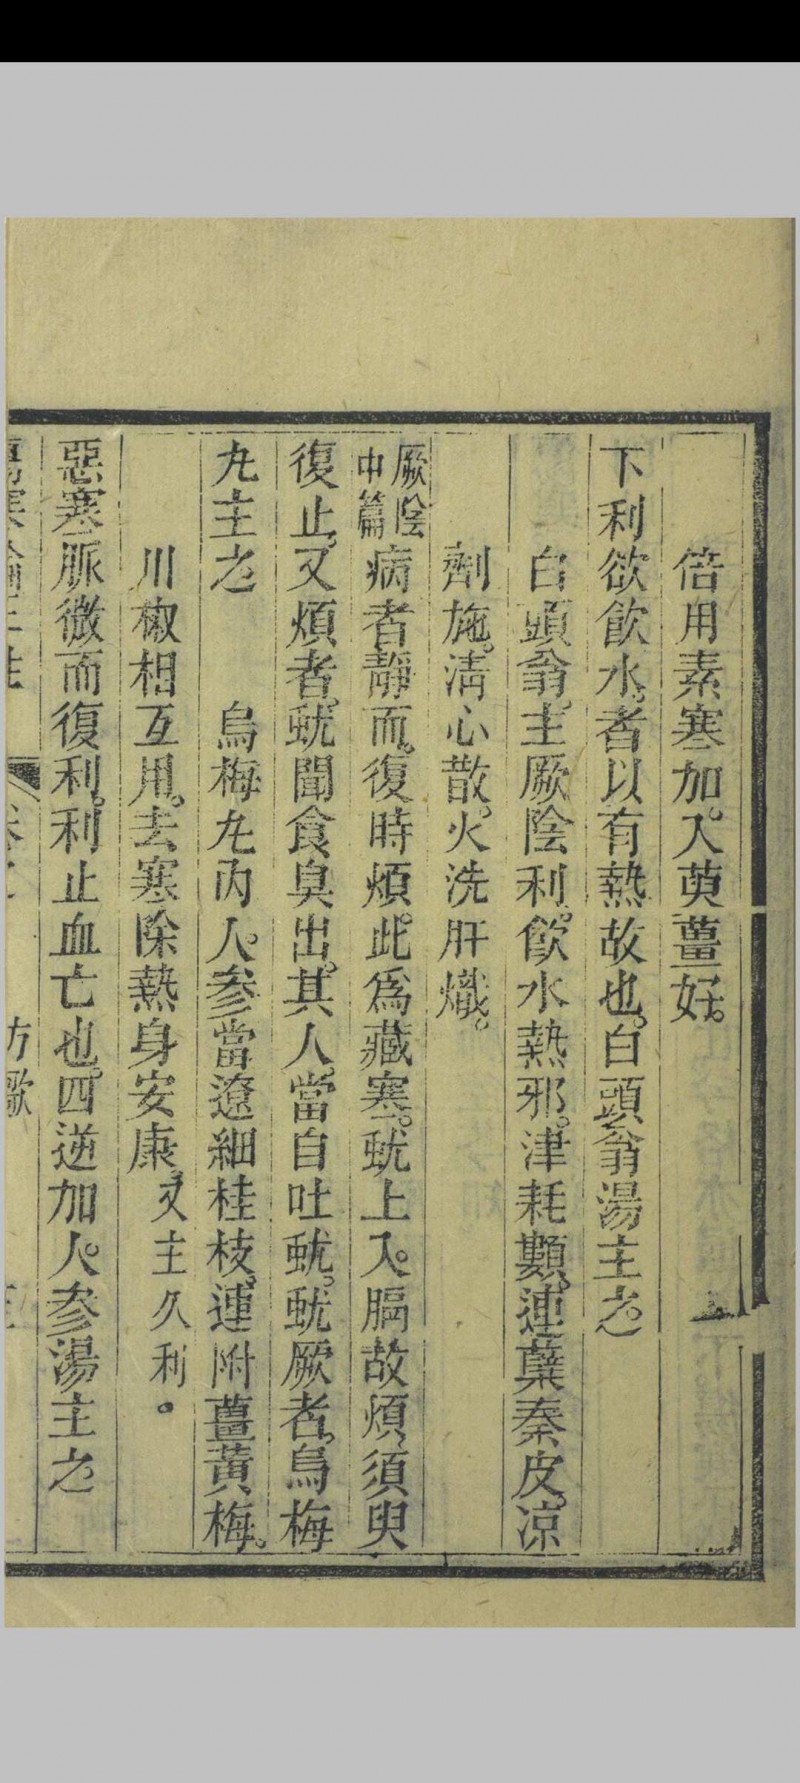 倍用素寒加入萸薑好。
下利欲飲水。者以有熱故也。白頭翁湯主之
白頭翁。主厥陰利。飲水熱邪。津耗顠。連蘗秦皮。凉
劑施。清心散。火洗肝熾。
厥陰中篇 病者靜而。復時煩。此爲藏寒。蚘上入。膈故煩須臾
復止。又煩者。蚘聞食臭出。其人。當自吐蚘。蚘厥者。烏梅
九主之 烏梅九內人。參當遼細桂枝。連附薑黃梅。
川椒相互用。去寒除熱身安康。又主久利。
惡寒脈微而復利。利止血亡也。四逆加人。參湯主之
方歌